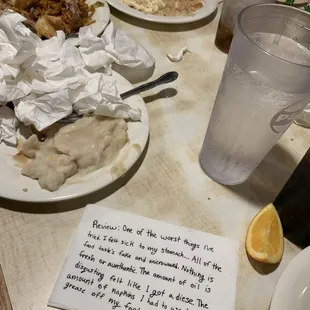 Review: One of the worst things I've
tried. I felt sick to my stomach... All of the
food tastes fake and microwaved. Nothing is
fresh or authentic. The amount of oil is
disgusting felt like I got a diese. The
amount of napkins I had to use
grease off my